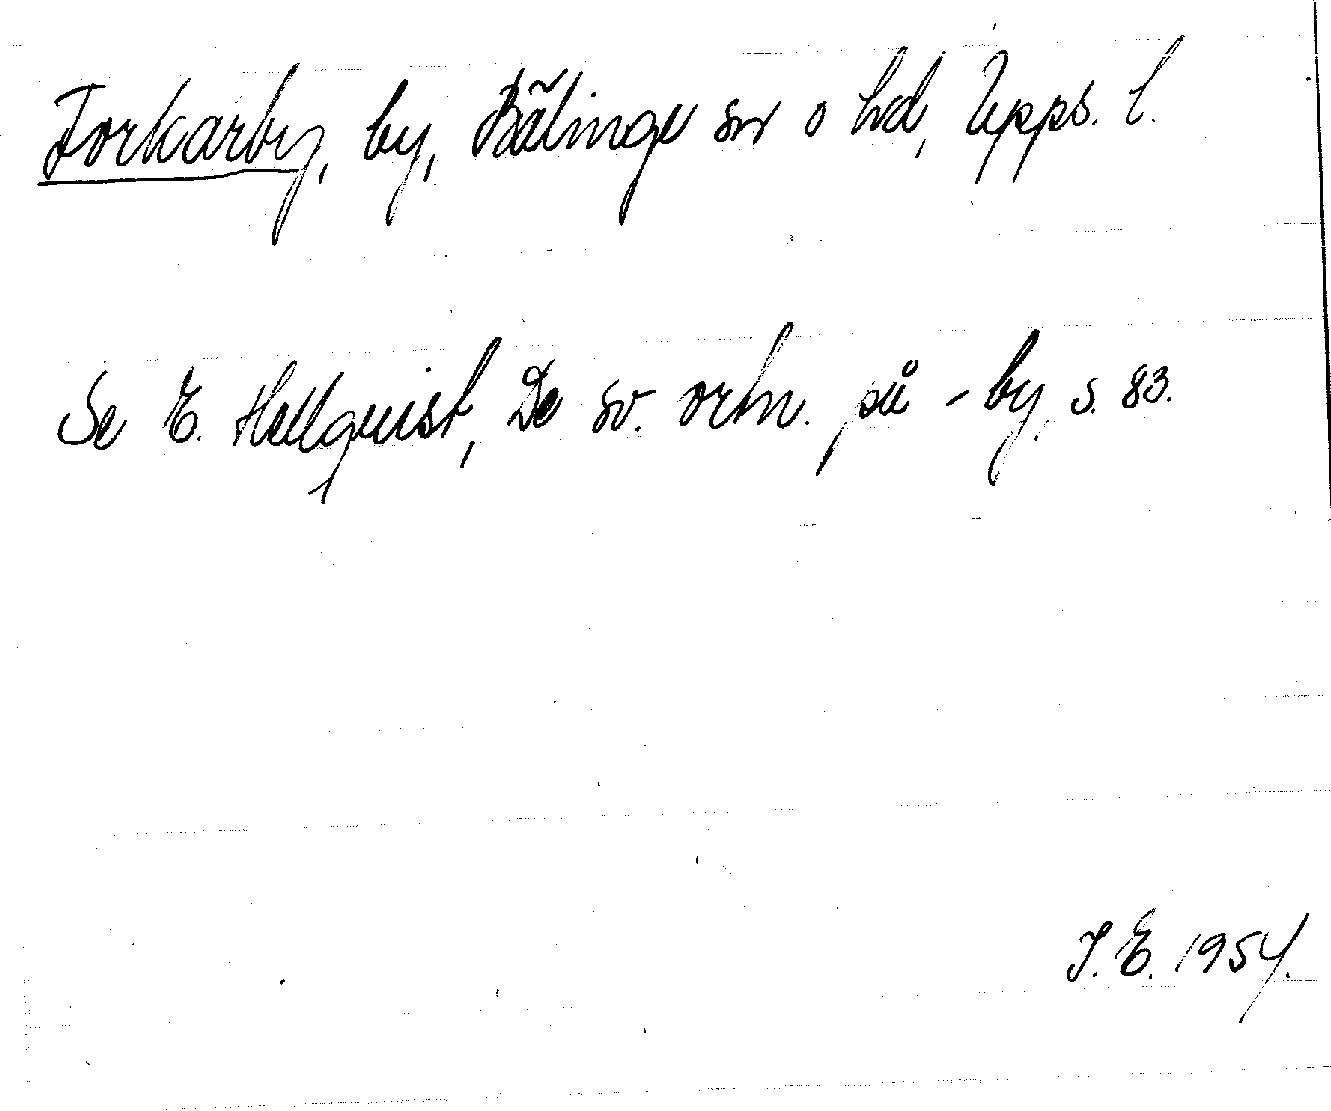 Forkarby, by, Bälinge sn o hd, Upps. l.
Se E. Hellquist, De sv. ortn. på -by, s. 83.
I. E. 1954.